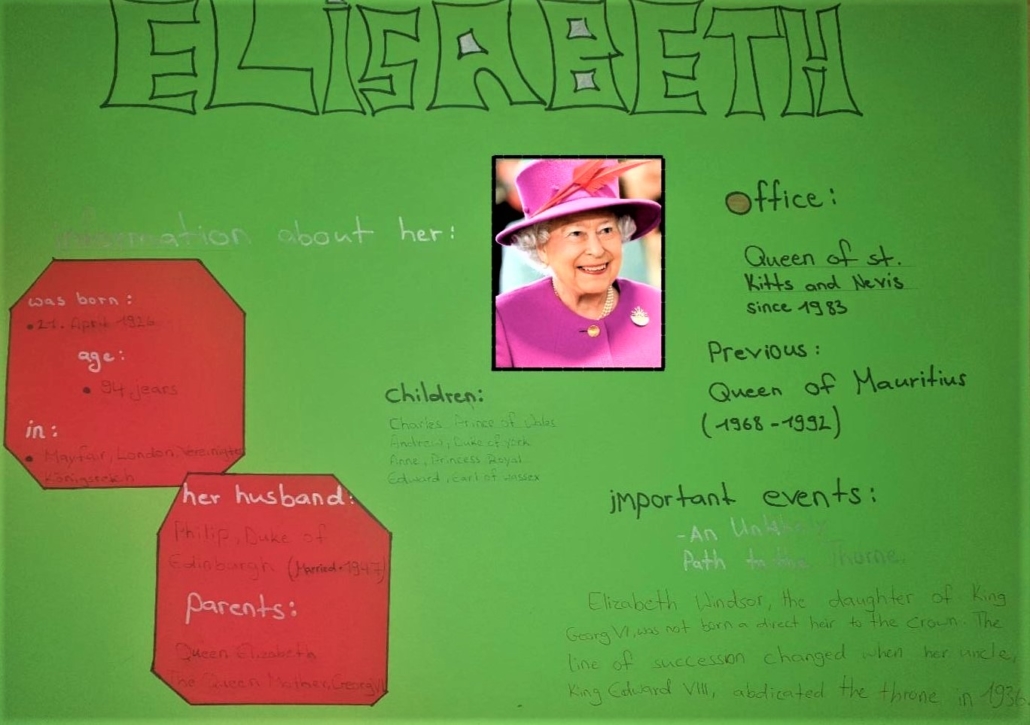 ELiSABETH
information about her:
was born:
• 21. April 1926
age:
• 94 jears
in:
• Mayfair, London, Vereinigte
Königreich
her husband:
Philip, Duke of
Edinburgh (Married 1947)
parents:
Queen Elizabeth
The Queen Mother, Georg VI
Children:
Charles, Prince of Wales
Andrew, Duke of york
Anne, Princess Royal
Edward, earl of wessex
Office:
Queen of st.
Kitts and Nevis
since 1983
Previous:
Queen of Mauritius
(1968-1992)
important events:
-An Unlikely
Path to the Thorne.
Elizabeth Windsor, the daughter of King
Georg VI, was not born a direct heir to the crown. The
line of succession changed when her uncle,
King Edward VIII, abdicated the throne in 1936